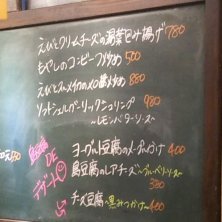 えびとクリームチーズの湯葉包み揚げ 780
もやしのコンビーフ炒め 500
えびとスナメイカのXO醤炒め 880
ソフトシェルガーリックシュリンプ 980
〜レモンバターソース〜
島豆腐 DE デザート
ヨーグルト豆腐のメープルがけ 400
島豆腐のレアチーズ〜ブルーベリーソース〜
380
チーズ豆腐〜黒みつかけ〜 400